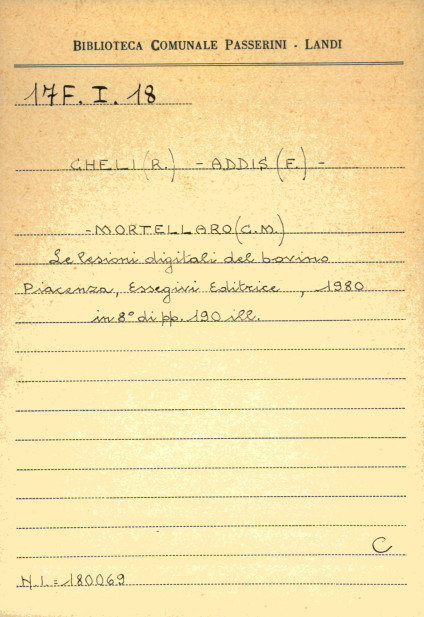 BIBLIOTECA COMUNALE PASSERINI - LANDI
17F. I. 18
CHELI (R.) - ADDIS (F.) -
- MORTELLARO (C.M.)
Le lesioni digitali del bovino
Piacenza, Essegivi Editrice , 1980
in 8° di pp. 190 ill.
C
N.I. = 180069